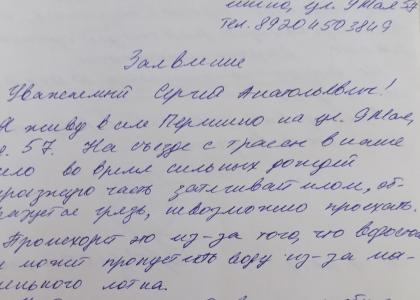 шино, ул. 9 Мая 57
тел. 89204503849
Заявление
Уважаемый Сергей Анатольевич!
Я живу в селе Першино на ул. 9 Мая,
д. 57. На съезде с трассы в наше
село во время сильных дождей
проезжую часть затягивает илом, об-
разуется грязь, невозможно проехать.
Происходит это из-за того, что
не может пропускать воду из-за ма-
ленького лотка.